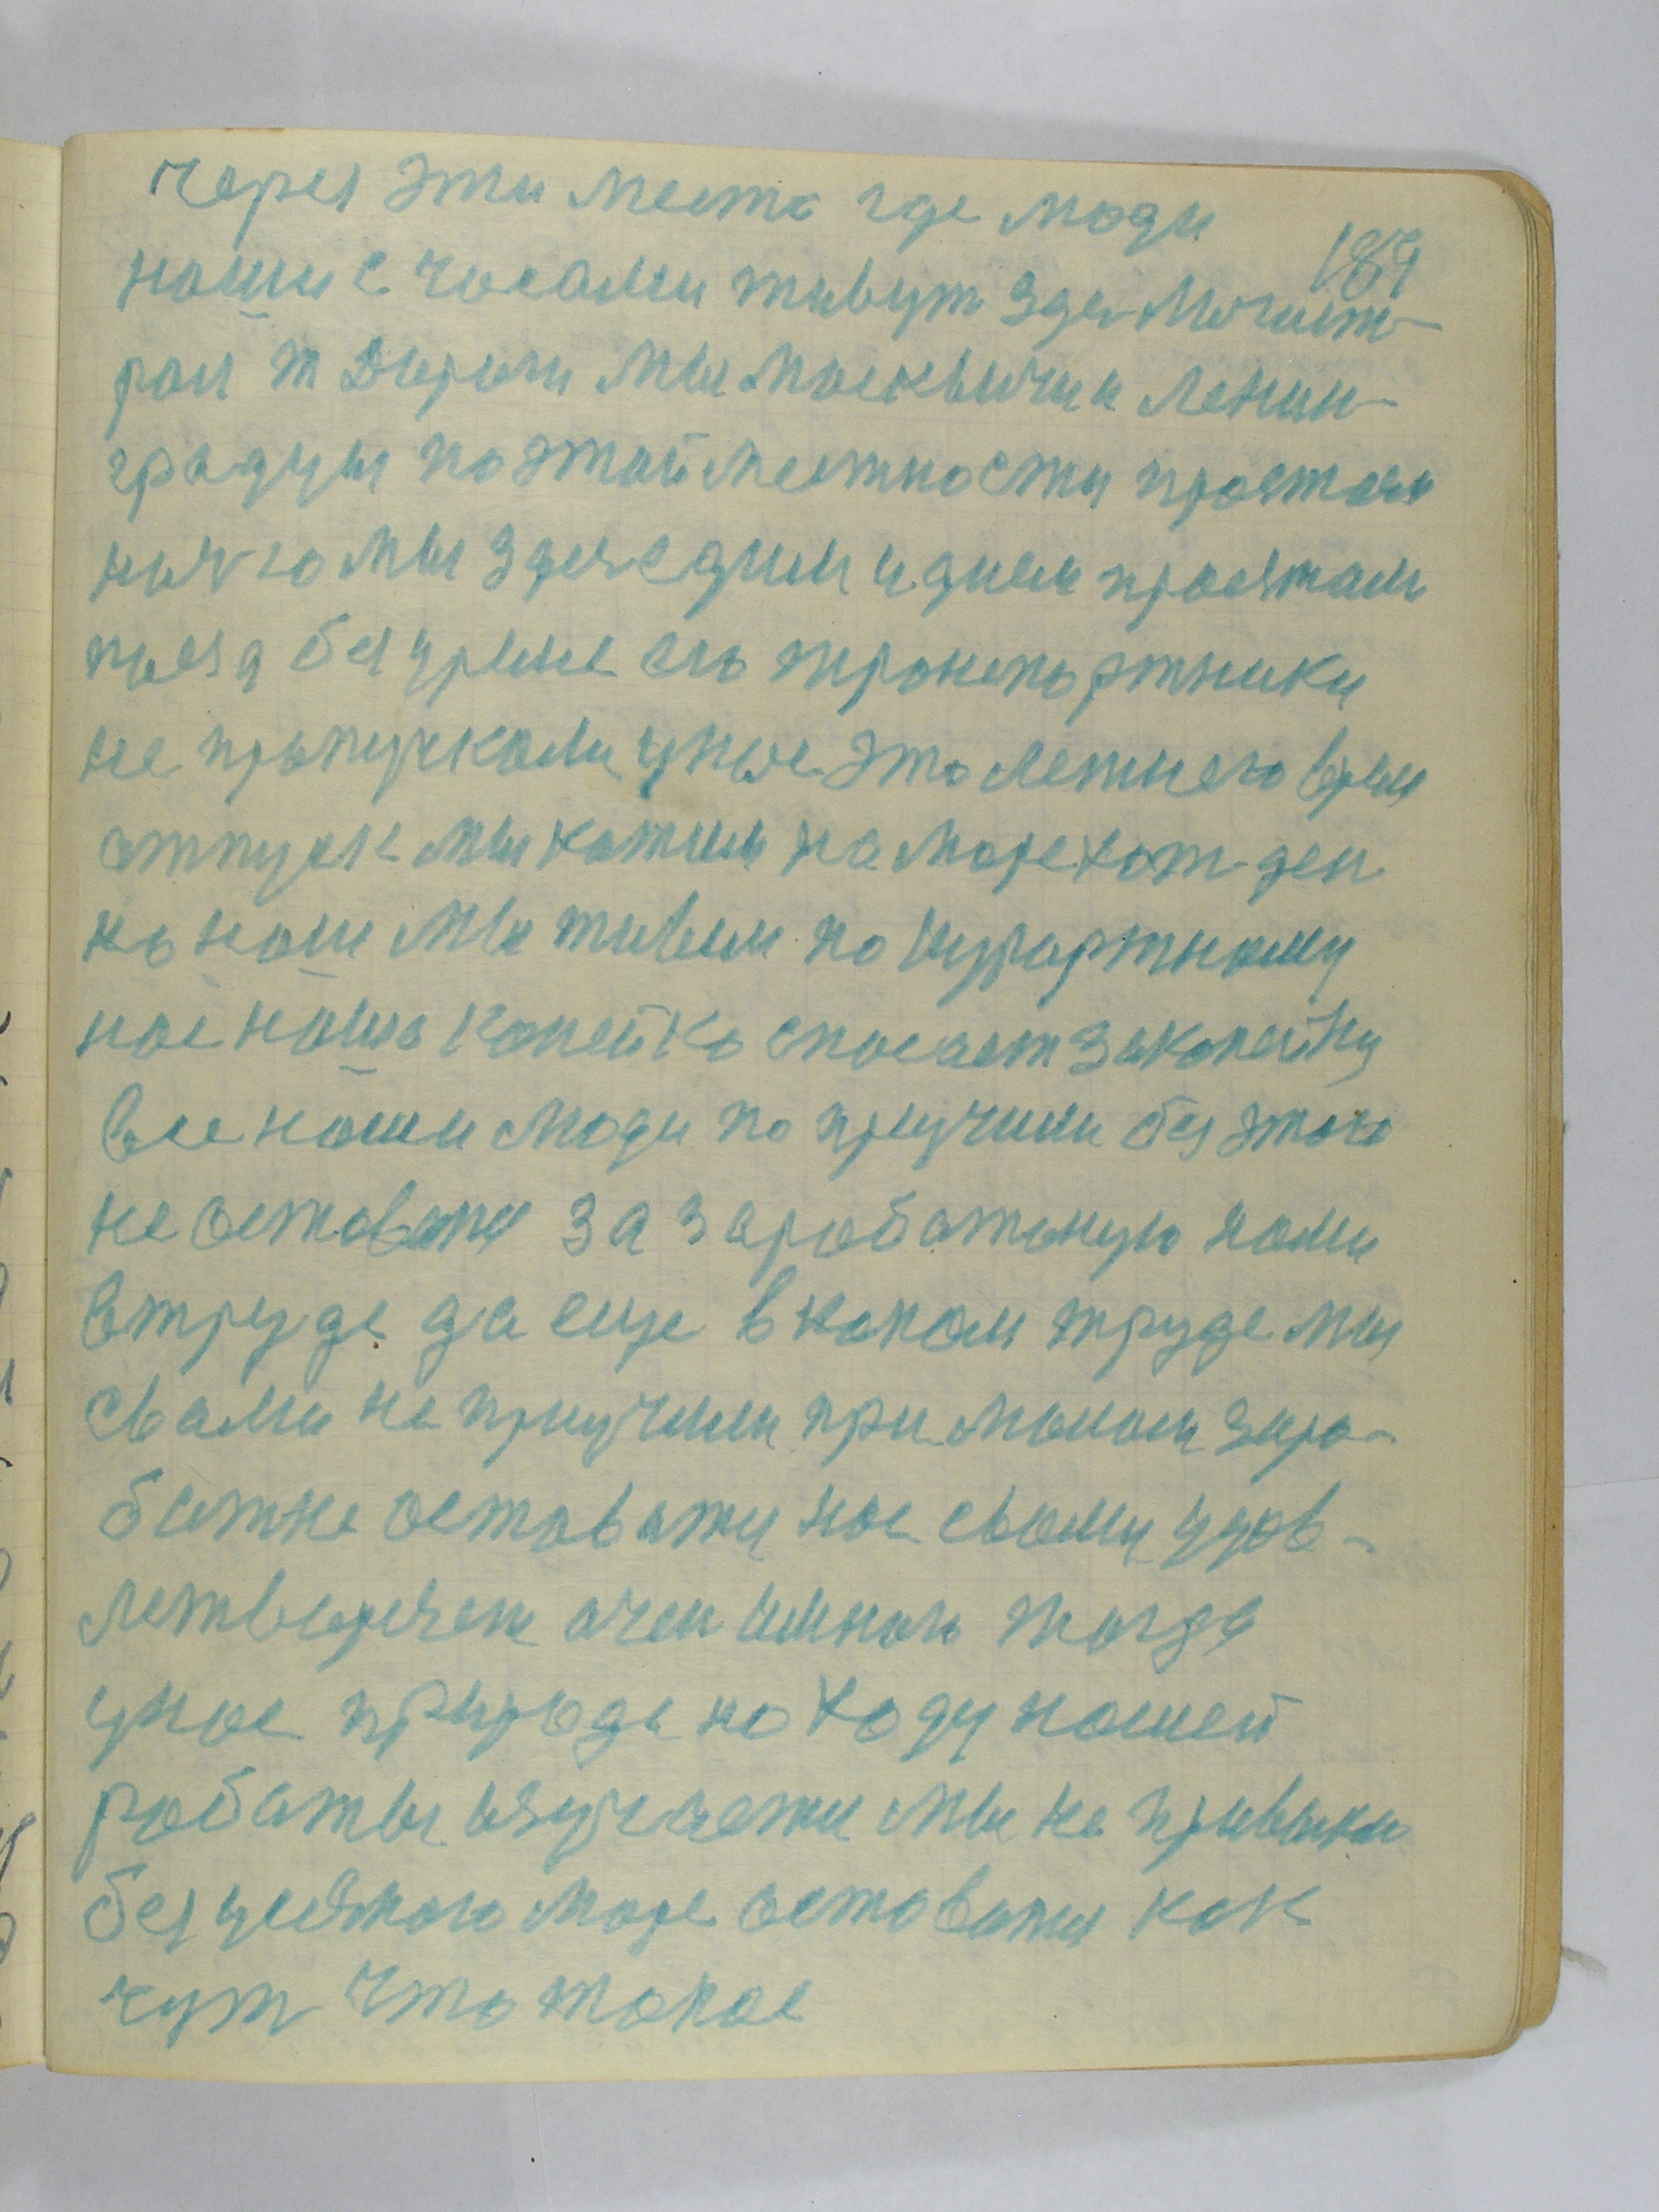 через эти места где люди
189
наши с часами живут здес Могист-
рал ж дороги мы москвичи и ленин-
градцы по этой местности проежаем
ночю мы здес едим и днем проежаем
нас транспортники
не пропускали у нас это летнего время
отпуск мы катим на море хот ден
но наш мы живем по курортному
нас наша копейка спасает за копейку
все наши люди по приучили без этого
не оставатця за заработаную нами
в труде да еще в каком труде мы
свами не приучили при малом зара-
ботке оставатця нас свами удов-
летворение очен силноя тогда
у нас природе на ходу нашей
работы изучаетця мы не привыкли
без уезжаю море оставатця как
чут что такое